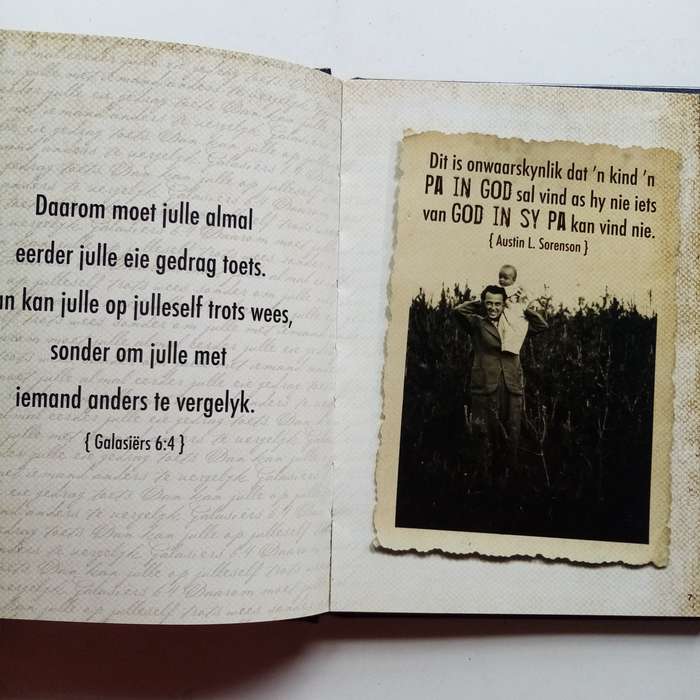 Daarom moet julle almal
eerder julle eie gedrag toets.
kan julle op julleself trots wees,
sonder om julle met
iemand anders te vergelyk.
{ Galasiërs 6:4 }
Dit is onwaarskynlik dat 'n kind 'n
PA IN GOD sal vind as hy nie iets
van GOD IN SY PA kan vind nie.
{ Austin L. Sorenson }